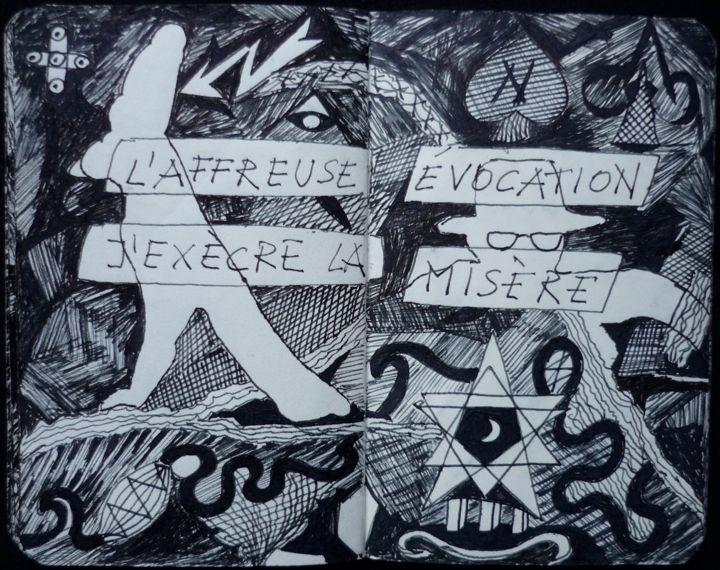 L'AFFREUSE ÉVOCATION
J'EXECRE LA MISÈRE